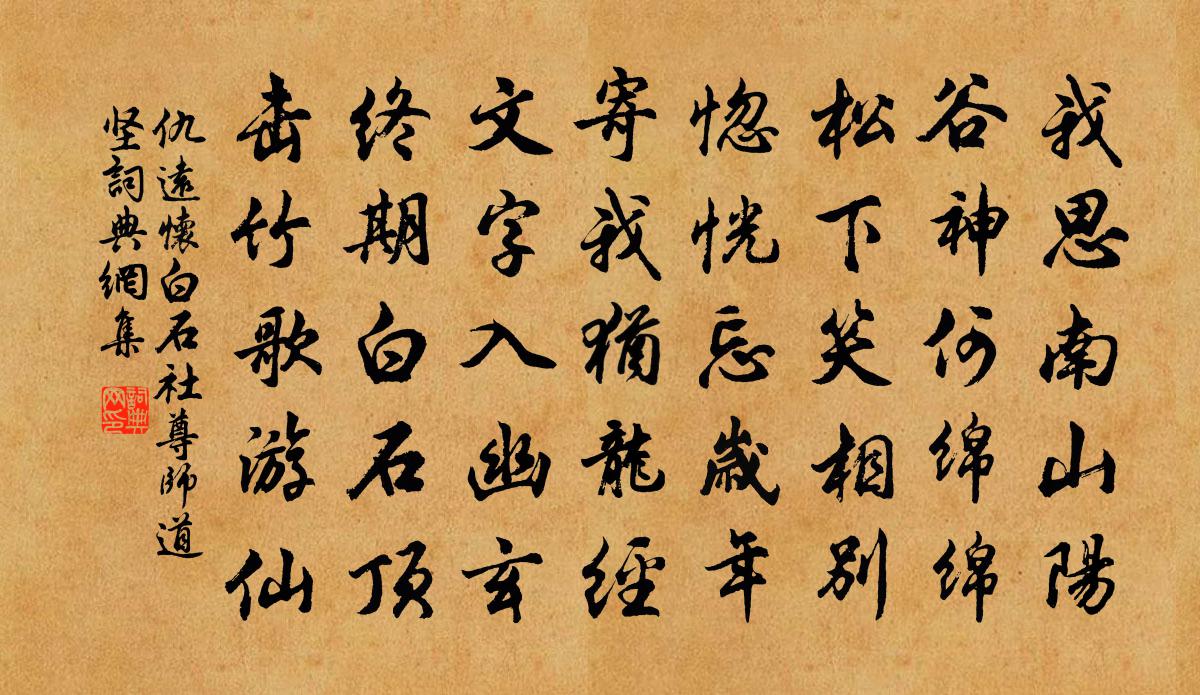 我思南山陽
谷神何綿綿
松下笑相別
惚恍忘歲年
寄我猶龍經
文字入幽玄
終期白石頂
击竹歌游仙
仇遠懷白石社尊師道
坚詞典網集
詞典
网印